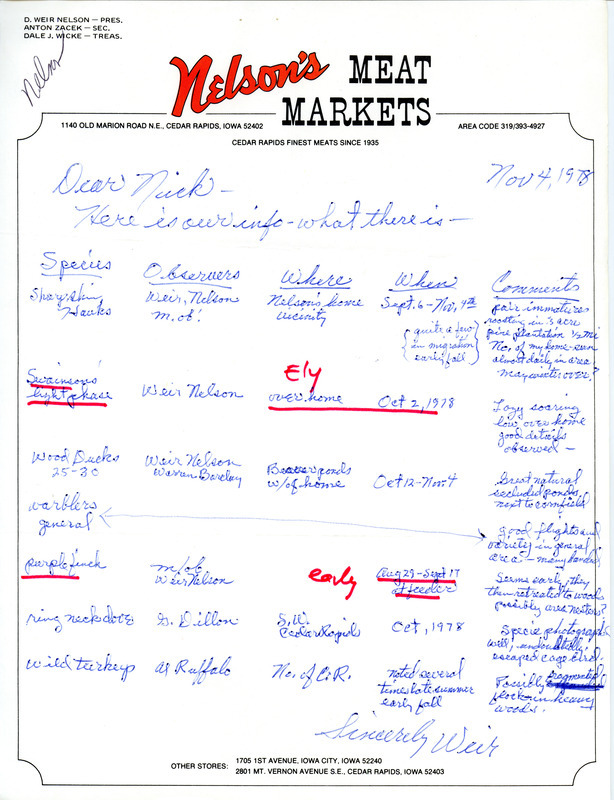 D. WEIR NELSON — PRES.
ANTON ZACEK — SEC.
DALE J. WICKE — TREAS.
Nelson
Nelson's MEAT
MARKETS
1140 OLD MARION ROAD N.E., CEDAR RAPIDS, IOWA 52402
AREA CODE 319/393-4927
CEDAR RAPIDS FINEST MEATS SINCE 1935
Nov 4, 1978
Dear Nick —
Here is our info - what there is —
Species Observers Where When Comments
Sharp shin Hawks
Weir, Nelson
m.ob.
Nelson's home
vicinity
Sept. 6 - Nov, 4th
{quite a few
in migration
early fall}
pair immatures
roosting in 3 acre
pine plantation 1/2 mi
No. of my home - seen
almost daily in area
May winter over?
Swainson's
light phase
Weir Nelson
Ely
over home
Oct 2, 1978
Lazy soaring
low over home
good details
observed —
Wood Ducks
25-30
Weir Nelson
Warren Barclay
Beaver ponds
w/of home
Oct 12 - Nov. 4
Great natural
secluded ponds,
next to cornfield
warblers
general
good flights and
variety in general
area - many bands
purple finch
m/ob
Weir Nelson
early
Aug 29 - Sept 17
at feeder
Seems early, they
then retreated to woods
possibly area nesters?
ring neck dove
G. Dillon
S.W.
Cedar Rapids
Oct, 1978
Specie photographed
well, undoubtedly
escaped cage bird.
Wild turkey
Al Ruffalo
No. of C.R.
noted several
times late summer
early fall
Possibly fragmented
flock in heavy
woods.
Sincerely Weir
OTHER STORES: 1705 1ST AVENUE, IOWA CITY, IOWA 52240
2801 MT. VERNON AVENUE S.E., CEDAR RAPIDS, IOWA 52403